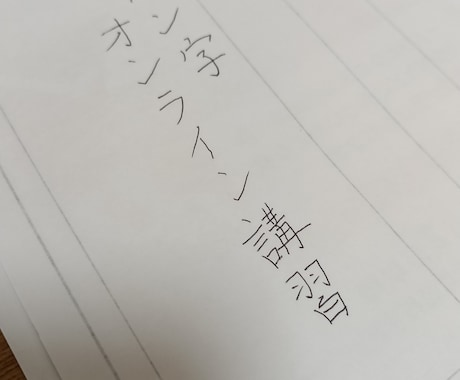 ン字
オンライン講習